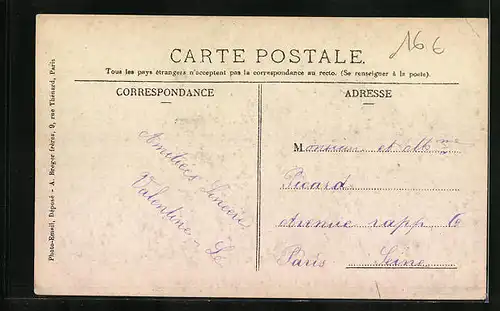 16 €
CARTE POSTALE.
Tous les pays étrangers n'acceptent pas la correspondance au recto. (Se renseigner à la poste).
CORRESPONDANCE
ADRESSE
Photo-Email, Déposé - A. Breger frères, 9, rue Thénard, Paris
Amitiées Sincères
Valentine
Monsieur et Mme
Picard
Avenue rapp 6
Paris Seine